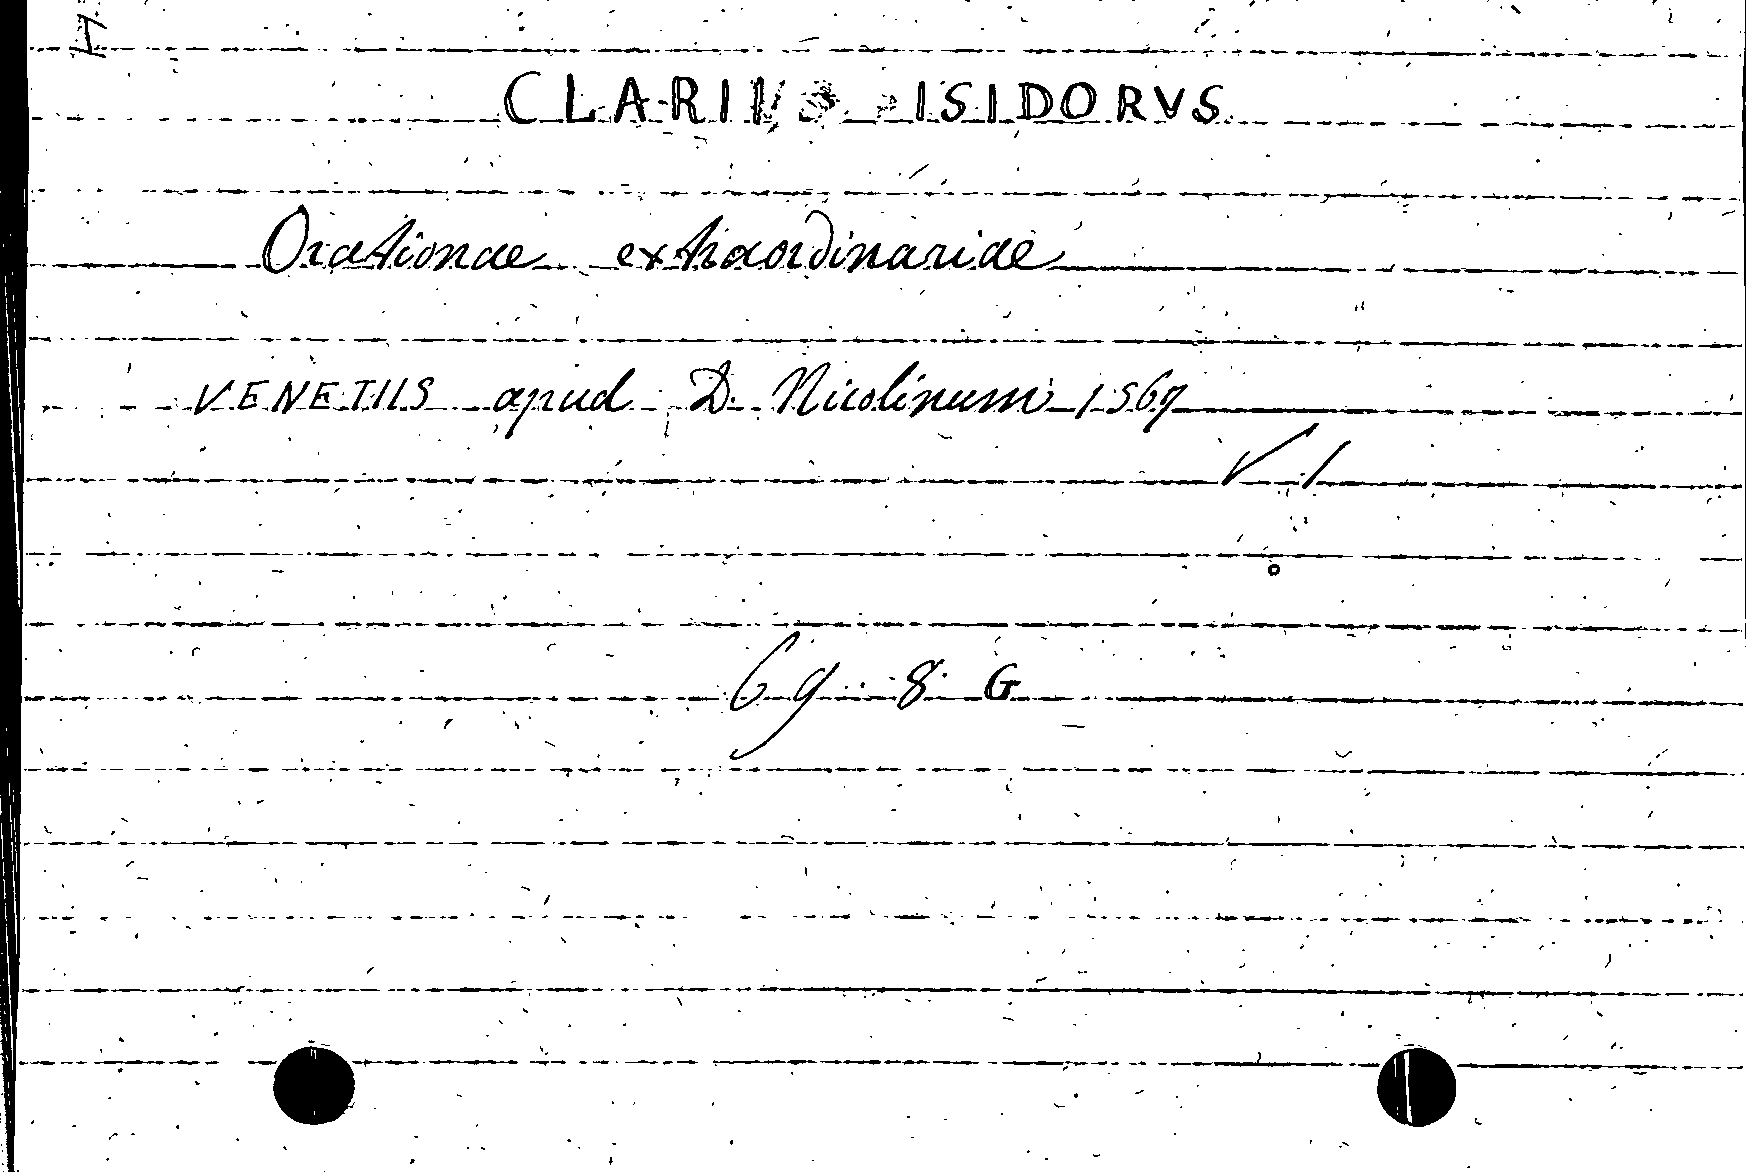 CLARIVS ISIDORVS
Orationae extraordinariae
VENETIIS apud D. Nicolinum 1567
V. 1
69. 8 G